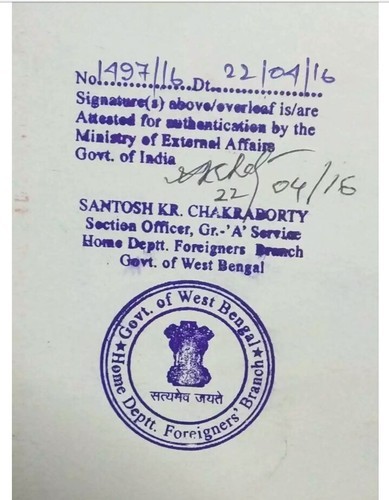 No. 1497/16 Dt. 22/04/16
Signature(s) above/overleaf is/are
Attested for authentication by the
Ministry of External Affairs
Govt. of India
22/04/16
SANTOSH KR. CHAKRABORTY
Section Officer, Gr.-'A' Service
Home Deptt. Foreigners Branch
Govt. of West Bengal
Govt. of West Bengal
सत्यमेव जयते
★ Home Deptt. Foreigners' Branch ★